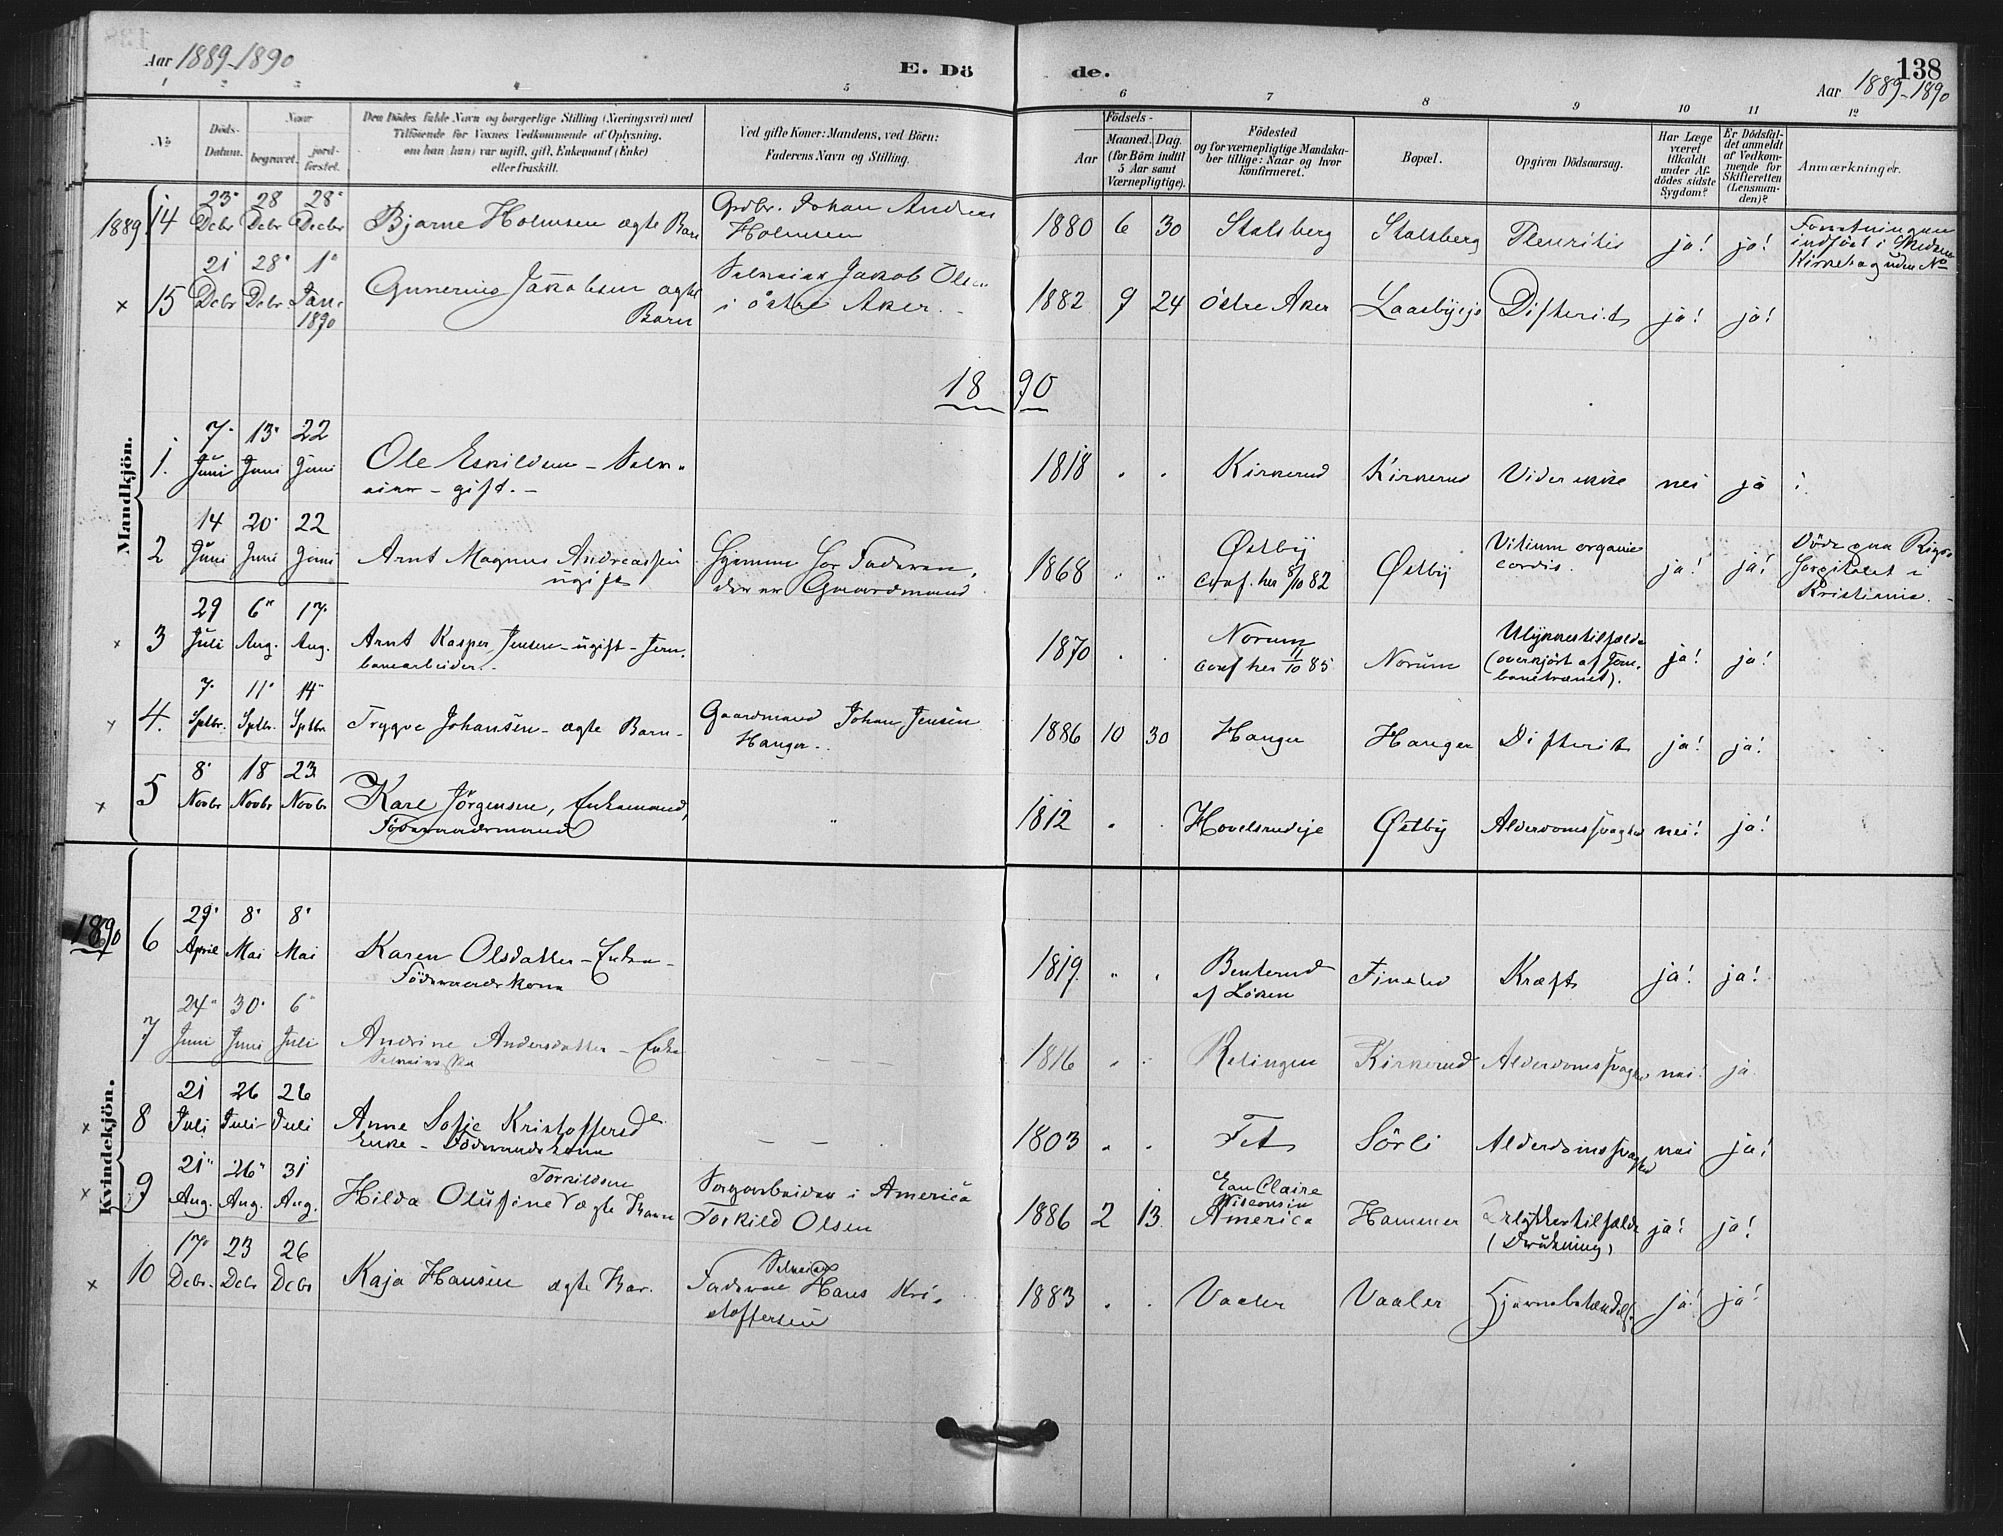 Aar 1889-1890
E. Dö de.
138
Aar 1889-1890
1 2 3 4 5 6 7 8 9 10 11 12
No
Döds-
Datum.
Naar
begravet.
jord-
fæstet.
Den Dödes fulde Navn og borgerlige Stilling (Næringsvei) med
Tilföiende for Voxnes Vedkommende af Oplysning,
om han (hun) var ugift, gift, Enkemand (Enke)
eller fraskilt.
Ved gifte Koner: Mandens, ved Börn:
Faderens Navn og Stilling.
Födsels-
Aar
Maaned. Dag.
(for Börn indtil
5 Aar samt
Værnepligtige).
Födested
og for værnepligtige Mandska-
ber tillige: Naar og hvor
konfirmeret.
Bopæl.
Opgiven Dödsaarsag.
Har Læge
været
tilkaldt
under Af-
dödes sidste
Sygdom?
Er Dödsfal-
det anmeldt
af Vedkom-
mende for
Skifteretten
(Lensman-
den)?
Anmærkninger.
Mandkjön.
1889 14 23 Debr 28 Debr 28 Decbr Bjarne Holmsen ægte Barn
Grdbr. Johan Andreas
Holmsen
1880 6 30 Stalsberg Stalsberg Pleuritis ja! ja!
Kirkebog uden No
x 15 21 Debr 28 Debr. 1 Jan. 1890 Gunerius Jakobsen ægte
Barn
Selveier Jakob Olsen
i östre Aker.
1882 9 24 östre Aker Laasbyeje Difterit ja! ja!
18 90
1. 7 Juni 13 Juni 22 Juni Ole Eskildsen - Selv-
eier - gift. -
1818 " " Kirkerud Kirkerud Vides ikke nei ja
2 14 Juni 20 Juni 22 Juni Arnt Magnus Andreassen
ugift
Hjemme hos Faderen,
der er Gaardmand.
1868 " " Østby
conf. her 8/10 82
Østby
Vitium organic
cordis.
ja! ja!
Döde paa Rigs-
hospitalet i
Kristiania.
x 3 29 Juli 6 Aug. 17 Aug. Arnt Kasper Jensen - ugift - Jern-
banearbeider.
1870 " " Norum
conf her 85
Norum
Ulykkestilfælde
(overkjört af Jern-
banetrænet).
ja! ja!
4. 7 Sptbr. 11 Sptbr. 14 Sptbr Trygve Johansen - ægte Barn -
Gaardmand Johan Jensen
Hanger.
1886 10 30 Hanger Hanger Difterit ja! ja!
x 5 8 Novbr 18 Novbr 23 Novbr Kare Jörgensen, Enkemand,
Föderaadsmand
"
1812 " " Hovelsrudeje Østby Alderdomssvaghed nei! ja!
Kvindekjön.
1890 6 29 April 8 Mai 8 Mai Karen Olsdatter - Enke -
Föderaadskone
1819 " " Benterud
af Löken
Finstad Kræft ja! ja!
7 24 Juni 30 Juni 6 Juli Andrine Andersdatter - Enke
Selveierske
1816 " " Relingen Kirkerud Alderdomssvaghed nei! ja
x 8 21 Juli 26 Juli 26 Juli Anne Sofie Kristoffersd
Enke - Föderaadskone
1803 " " Fet Sörli Alderdomssvaghed nei ja!
x 9 21 Aug. 26 Aug. 31 Aug. Hilda Olufine Torkildsen ægte Barn
Sagarbeider i America
Torkild Olsen
1886 2 13 Eau Claire
Wisconsin
America
Hammer
Ulykkestilfælde
(Drukning)
ja! ja!
x 10 17 Debr. 23 Debr 26 Debr Kaja Hansen ægte Bar.
Selveier
Faderen Hans Kri-
stoffersen
1883 " " Vaaler Vaaler Hjernebetændelse ja! ja!